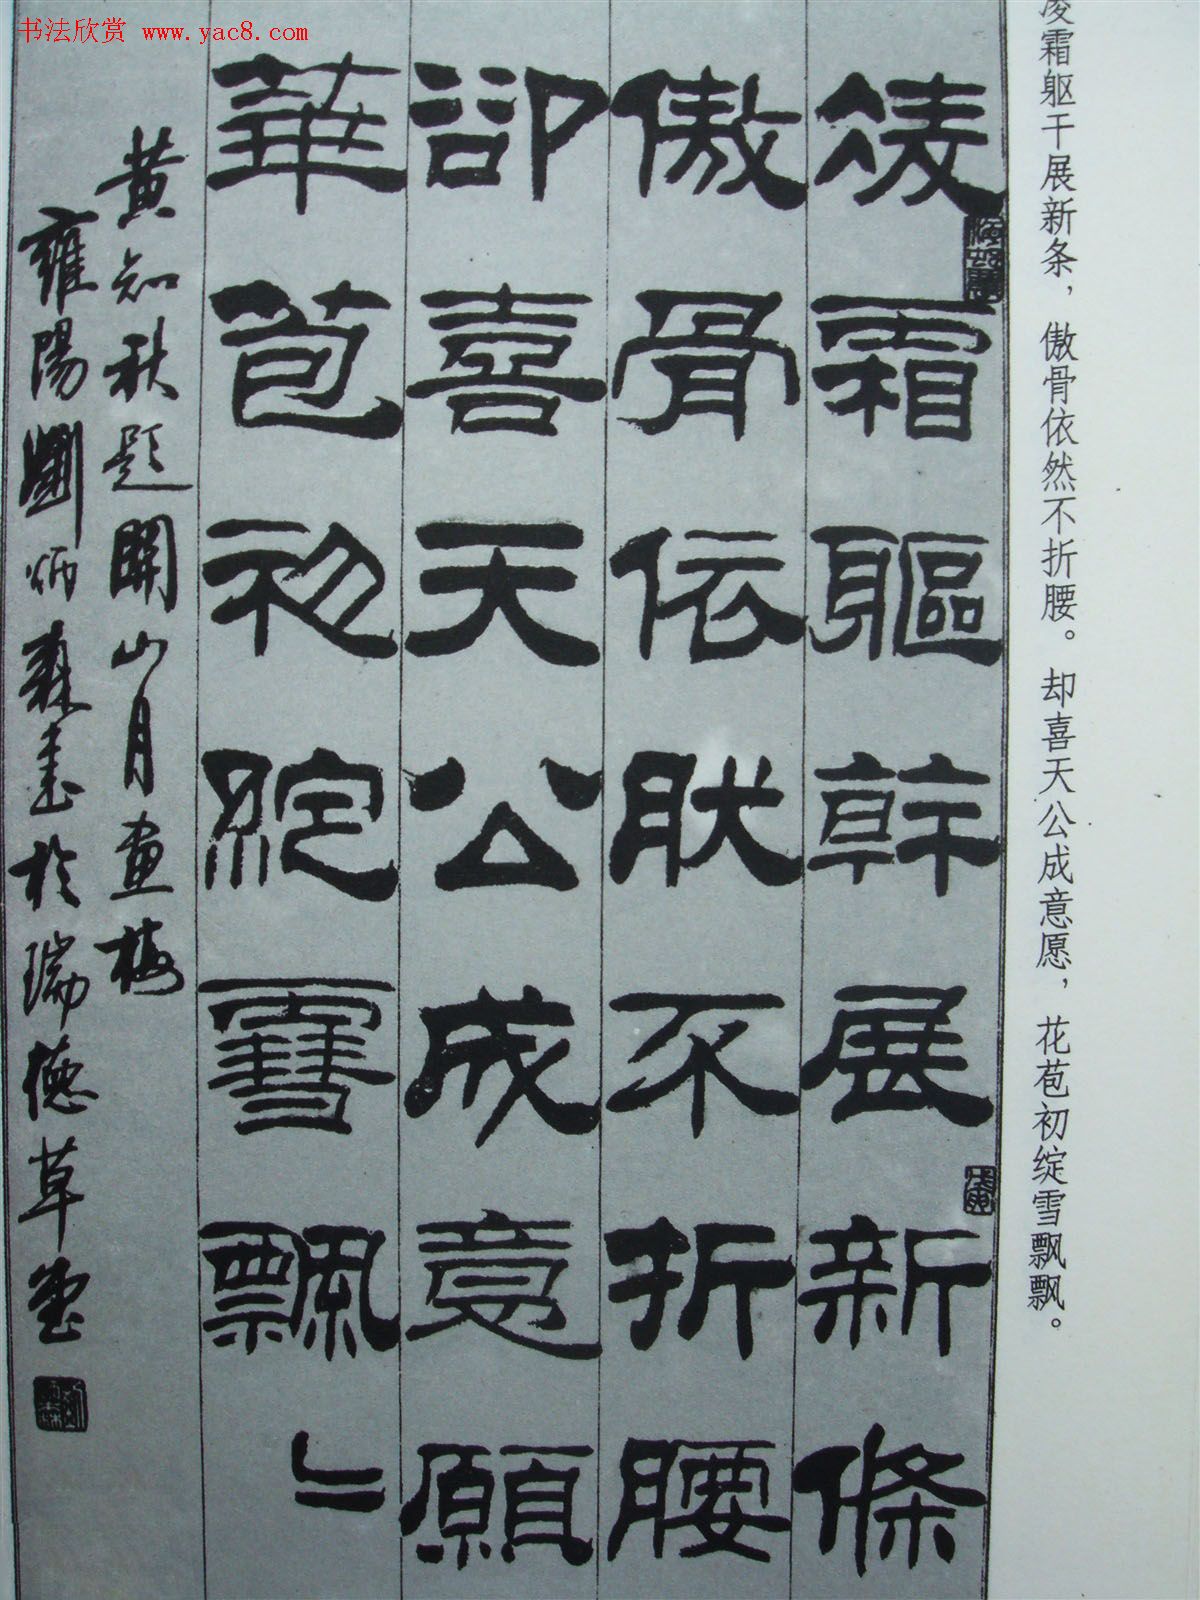 书法欣赏 www.yac8.com
凌霜躯干展新条，傲骨依然不折腰。却喜天公成意愿，花苞初绽雪飘飘。
凌霜軀幹展新條
傲骨依肰不折腰
卻喜天公成意願
華苞初綻雪飄〻
黄知秋題關山月畫梅
雍陽劉炳森書於瑞德草堂